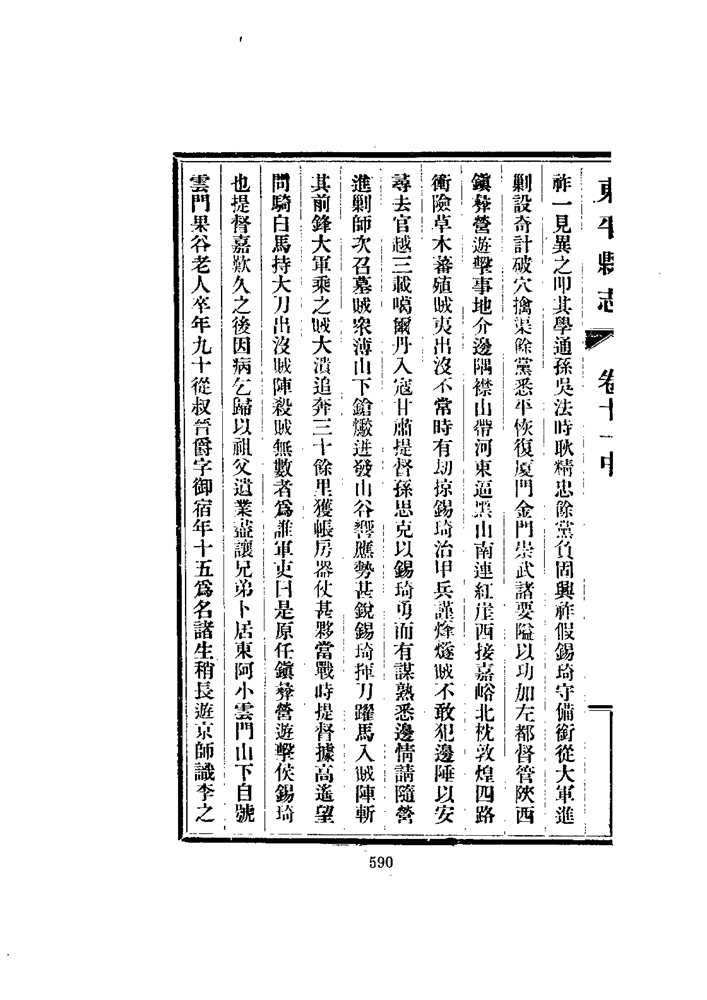 東平縣志 卷十一中
祚一見異之叩其學通孫吳法時耿精忠餘黨負固興祚假錫琦守備銜從大軍進
剿設奇計破穴擒渠餘黨悉平恢復廈門金門崇武諸要隘以功加左都督管陝西
鎭彝營遊擊事地介邊隅襟山帶河東逼黑山南連紅崖西接嘉峪北枕敦煌四路
衝險草木蕃殖賊夷出沒不常時有刧掠錫琦治甲兵謹烽燧賊不敢犯邊陲以安
尋去官越三載噶爾丹入寇甘肅提督孫思克以錫琦勇而有謀熟悉邊情請隨營
進剿師次召墓賊衆薄山下鎗礮迸發山谷響應勢甚銳錫琦揮刀躍馬入賊陣斬
其前鋒大軍乘之賊大潰追奔三十餘里獲帳房器仗甚夥當戰時提督據高遙望
問騎白馬持大刀出沒賊陣殺賊無數者爲誰軍吏曰是原任鎭彝營遊擊侯錫琦
也提督嘉歎久之後因病乞歸以祖父遺業盡讓兄弟卜居東阿小雲門山下自號
雲門果谷老人卒年九十從叔晉爵字御宿年十五爲名諸生稍長遊京師識李之
590